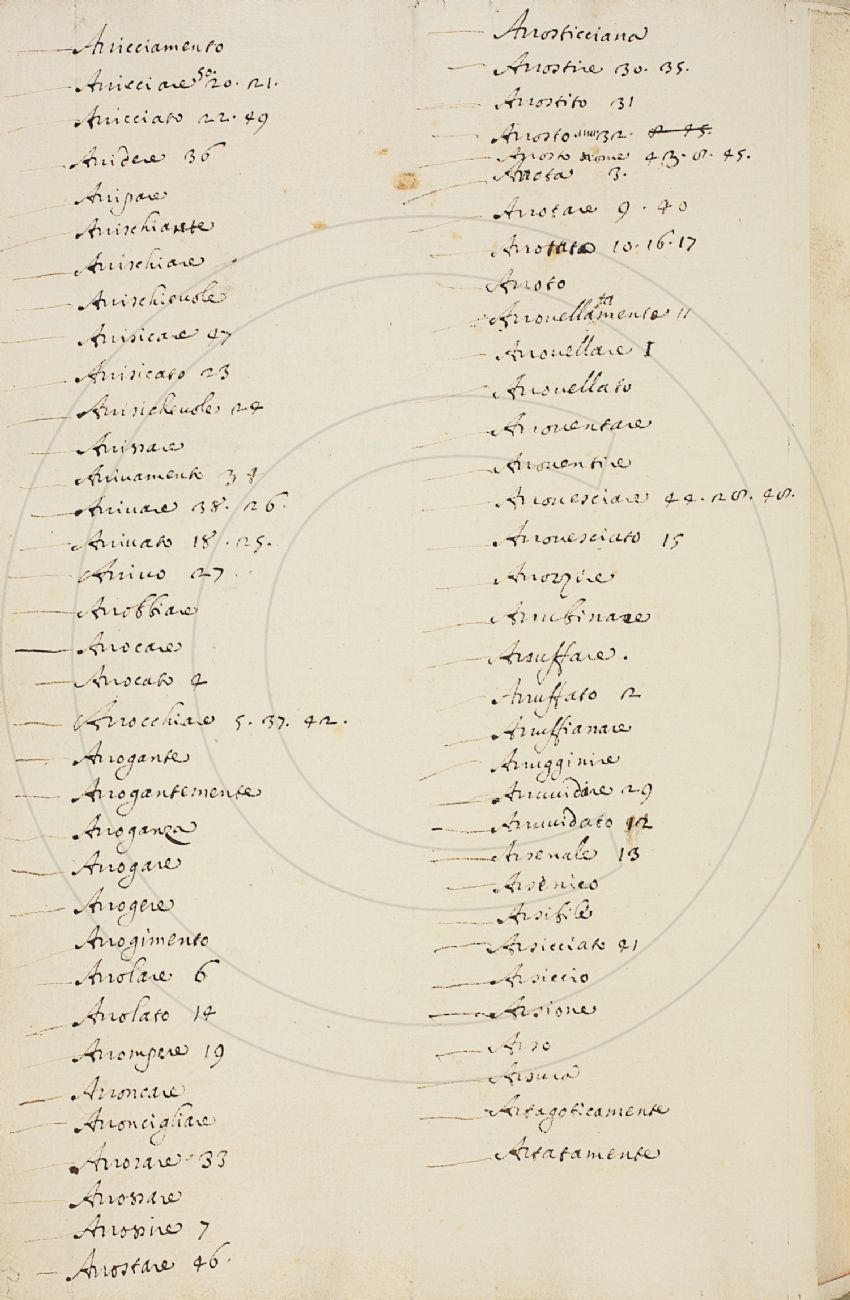 Arricciamento
Arricciare 50. 20. 21.
Arricciato 22. 49
Arridere 36
Arripare
Arrischiante
Arrischiare
Arrischievole
Arrisicare 47
Arrisicato 23
Arrisichevole 24
Arrissare
Arrivamento 34
Arrivare 38. 26.
Arrivato 18. 25.
Arrivo 27
Arrobbiare
Arrocare
Arrocato 4
Arrocchiare 5. 37. 42.
Arrogante
Arrogantemente
Arroganza
Arrogare
Arrogere
Arrogimento
Arrolare 6
Arrolato 14
Arrompere 19
Arroncare
Arroncigliare
Arrorare 33
Arrossare
Arrossire 7
Arrostare 46.
Arrosticciana
Arrostire 30. 35.
Arrostito 31
Arrosto 32. 8. 45.
Arrosto nome 43. 8. 45.
Arrota 3.
Arrotare 9. 40
Arrotato 10. 16. 17
Arroto
Arrovellatamente 11
Arrovellare 1
Arrovellato
Arroventare
Arroventire
Arrovesciare 44. 28. 48.
Arrovesciato 15
Arrozzire
Arrubinare
Arruffare.
Arruffato 2
Arruffianare
Arrugginire
Arruvidire 29
Arruvidato 12
Arsenale 13
Arsènico
Arsibile
Arsicciato 41
Arsiccio
Arsione
Arso
Arsura
Artagoticamente
Artatamente